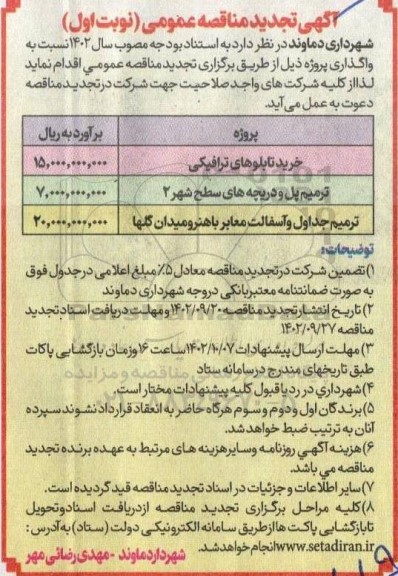 آگهی تجدید مناقصه عمومی (نوبت اول)
شهرداری دماوند در نظر دارد به استناد بودجه مصوب سال ۱۴۰۲ نسبت به
واگذاری پروژه ذیل از طریق برگزاری تجدید مناقصه عمومی اقدام نماید
لذا از کلیه شرکت های واجد صلاحیت جهت شرکت در تجدید مناقصه
دعوت به عمل می آید.
پروژه برآورد به ریال
خرید تابلوهای ترافیکی ۱۵,۰۰۰,۰۰۰,۰۰۰
ترمیم پل و دریچه های سطح شهر ۲ ۷,۰۰۰,۰۰۰,۰۰۰
ترمیم جداول و آسفالت معابر باهنر و میدان گلها ۲۰,۰۰۰,۰۰۰,۰۰۰
توضیحات:
۱) تضمین شرکت در تجدید مناقصه معادل ۵٪ مبلغ اعلامی در جدول فوق
به صورت ضمانتنامه معتبر بانکی در وجه شهرداری دماوند
۲) تاریخ انتشار تجدید مناقصه ۱۴۰۲/۰۹/۲۰ و مهلت دریافت اسناد تجدید
مناقصه ۱۴۰۲/۰۹/۲۷
۳) مهلت ارسال پیشنهادات ۱۴۰۲/۱۰/۰۷ ساعت ۱۶ و زمان بازگشایی پاکات
طبق تاریخهای مندرج در سامانه ستاد
۴) شهرداری در رد یا قبول کلیه پیشنهادات مختار است.
۵) برندگان اول و دوم و سوم هرگاه حاضر به انعقاد قرارداد نشوند سپرده
آنان به ترتیب ضبط خواهد شد.
۶) هزینه آگهی روزنامه و سایر هزینه های مرتبط به عهده برنده تجدید
مناقصه می باشد.
۷) سایر اطلاعات و جزئیات در اسناد تجدید مناقصه قید گردیده است.
۸) کلیه مراحل برگزاری تجدید مناقصه از دریافت اسناد و تحویل
تا بازگشایی پاکت ها از طریق سامانه الکترونیکی دولت (ستاد) به آدرس:
www.setadiran.ir انجام خواهد شد.
شهردار دماوند - مهدی رضائی مهر